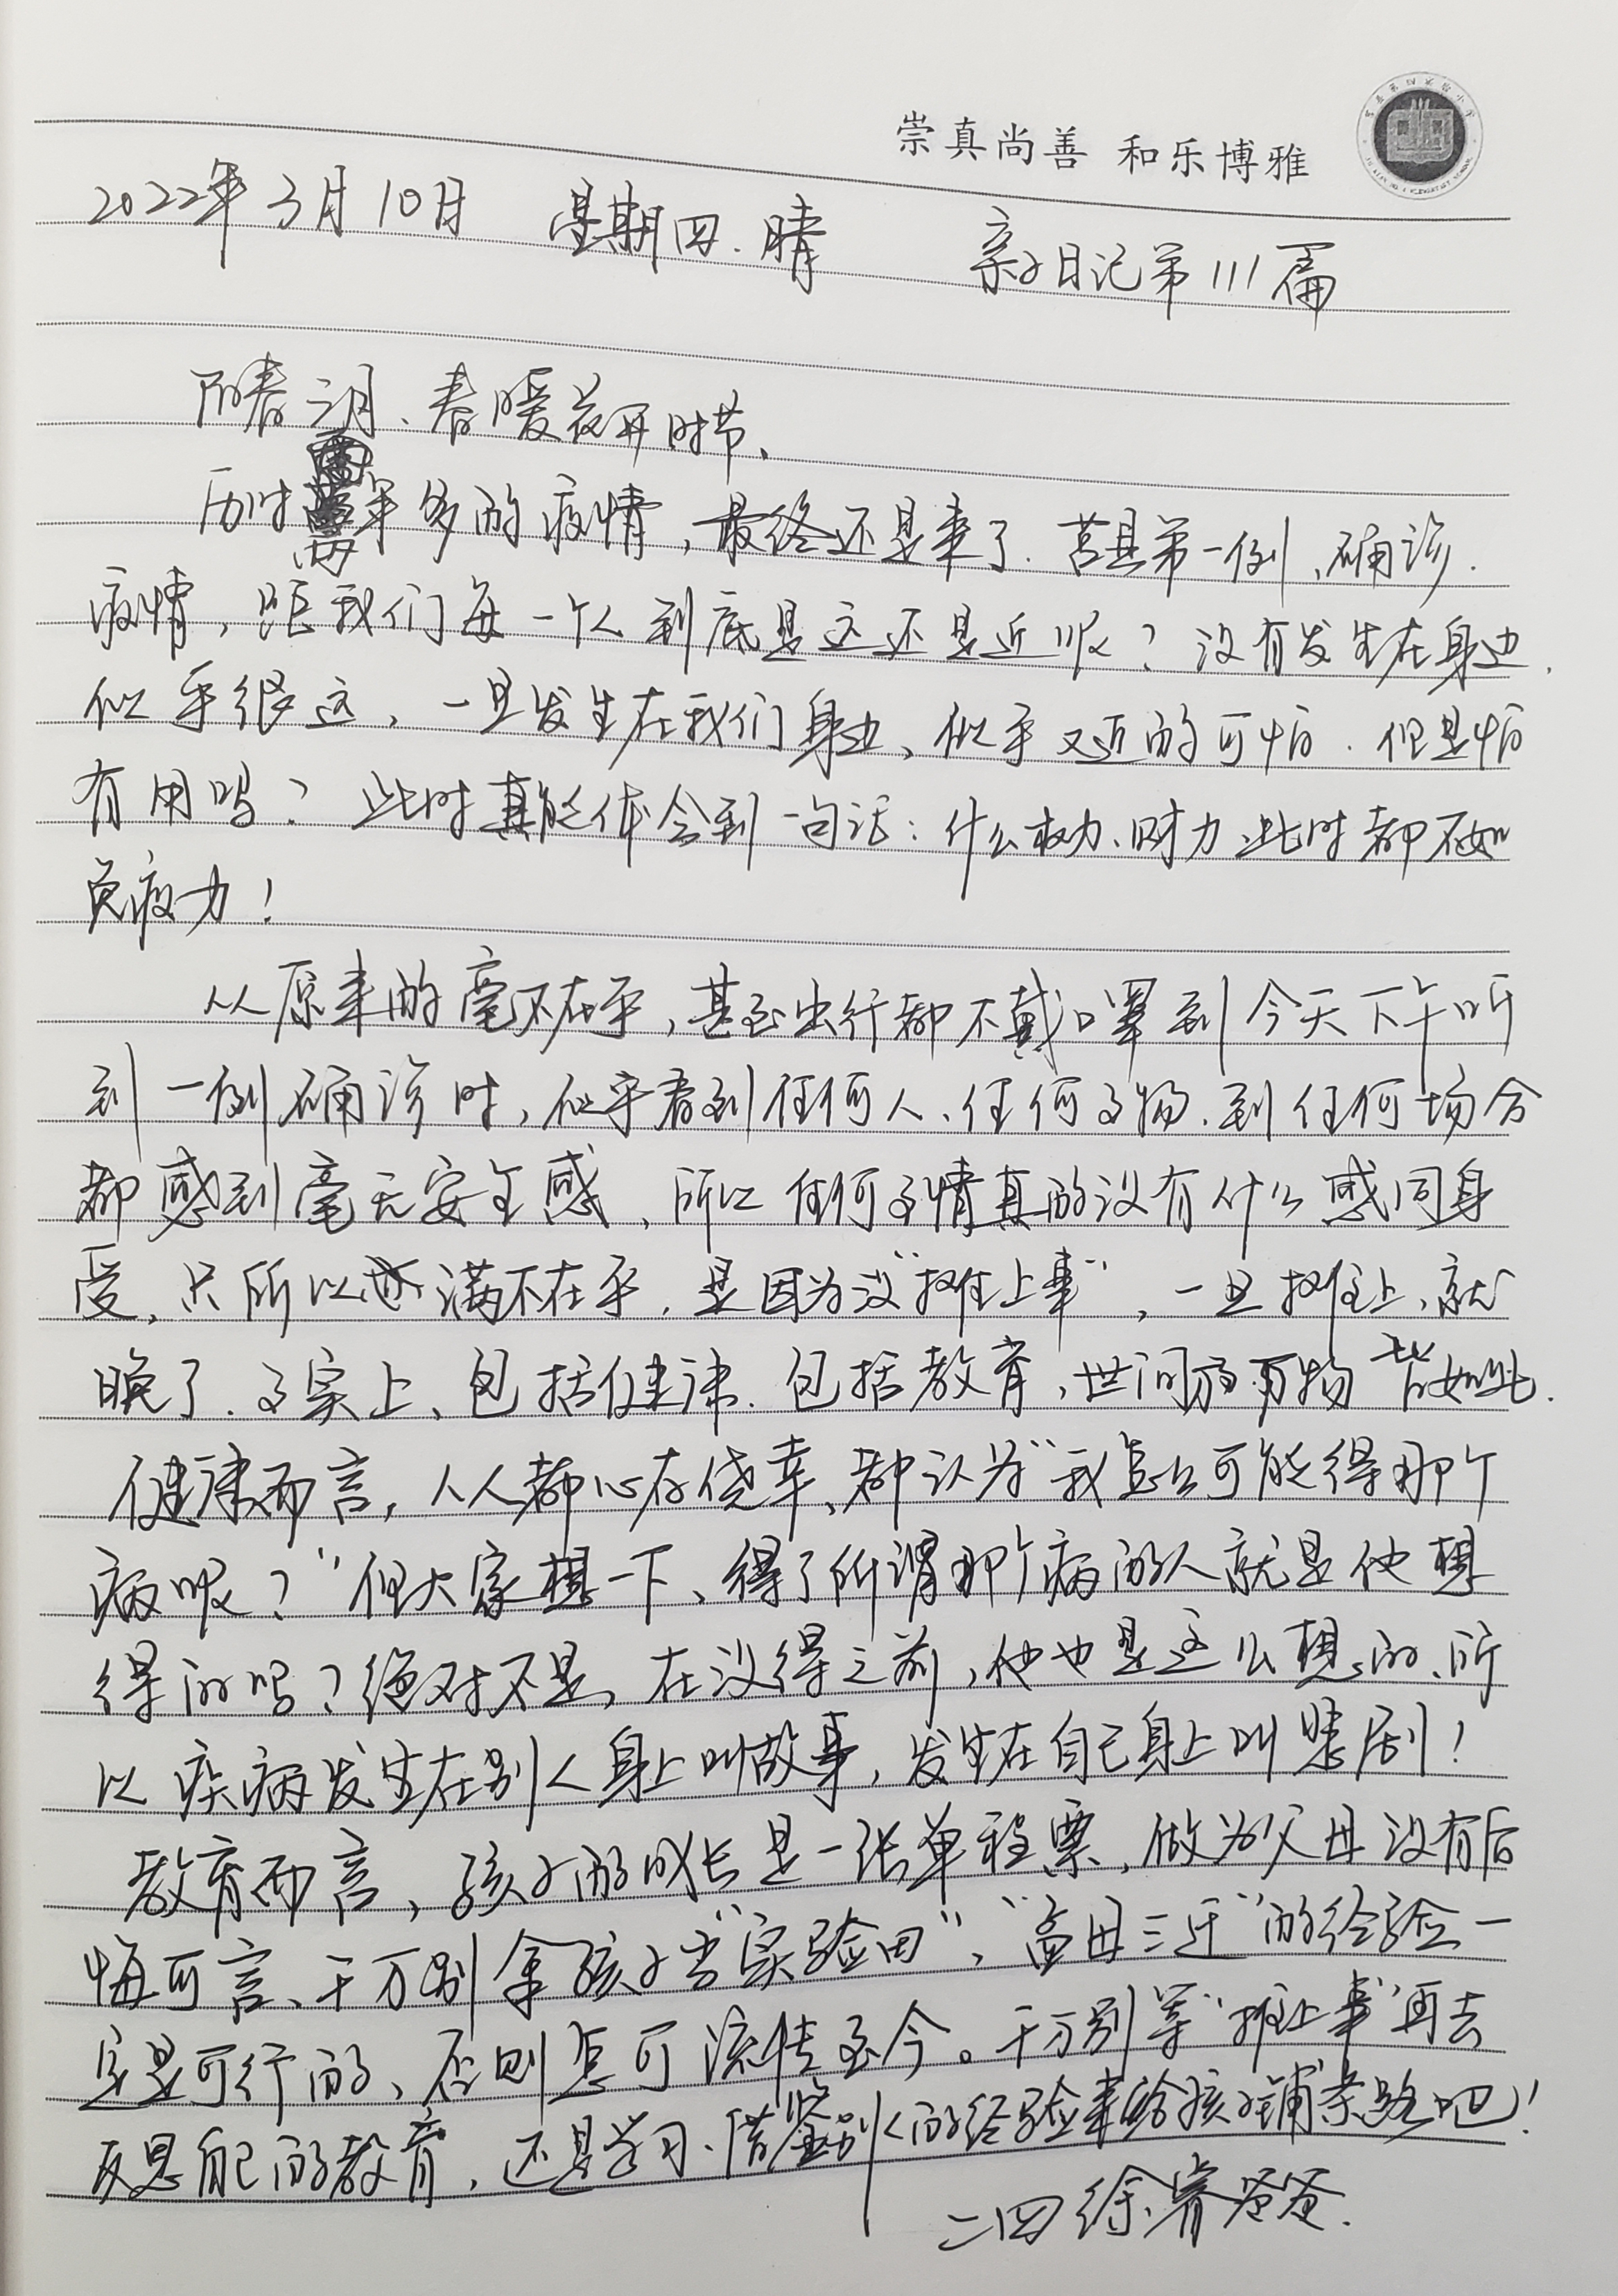 崇真尚善 和乐博雅
2022年3月10日 星期四.晴 亲子日记第111篇
阳春三月、春暖花开时节、
历时两年多的疫情，最终还是来了.莒县第一例、确诊.
疫情，距我们每一个人到底是远还是近呢？没有发生在身边.
似乎很远，一旦发生在我们身边、似乎又近的可怕.但是怕
有用吗？此时真能体会到一句话：什么权力、财力、此时都不如
免疫力！
从原来的毫不在乎，甚至出行都不戴口罩到今天下午听
到一例确诊时，似乎看到任何人、任何事物、到任何场合
都感到毫无安全感、所以任何事情真的没有什么感同身
受，只所以满不在乎，是因为没“摊上事”，一旦摊上、就
晚了.事实上、包括健康.包括教育，世间万物皆如此.
健康而言，人人都心存侥幸、都认为“我怎么可能得那个
病呢？”但大家想一下、得了所谓那个病的人就是他想
得的吗？绝对不是，在没得之前，他也是这么想的、所
以疾病发生在别人身上叫故事，发生在自己身上叫悲剧！
教育而言，孩子的成长是一张单程票，做为父母没有后
悔可言、千万别拿孩子当“实验田”，“孟母三迁”的经验一
定是可行的、否则怎可流传至今。千万别等“摊上事”再去
反思自己的教育，还是学习、借鉴别人的经验来给孩子铺条路吧！
二四徐睿爸爸.